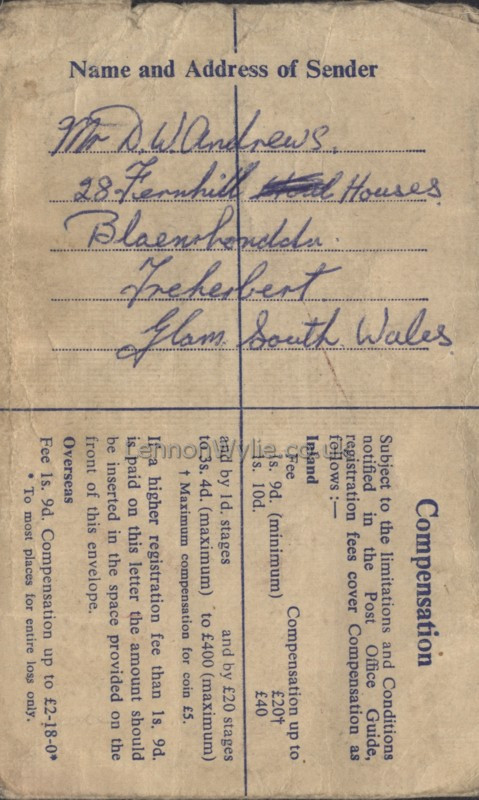 Name and Address of Sender
Mr D. W. Andrews.
28 Fernhill Houses
Blaenrhondda.
Treherbert
Glam South Wales.
LennonWylie.co.uk
Compensation
Subject to the limitations and Conditions
notified in the Post Office Guide,
registration fees cover Compensation as
follows :—
Inland
Fee Compensation up to
1s. 9d. (minimum) £20†
1s. 10d. £40
and by 1d. stages and by £20 stages
to 3s. 4d. (maximum) to £400 (maximum)
† Maximum compensation for coin £5.
If a higher registration fee than 1s. 9d.
is paid on this letter the amount should
be inserted in the space provided on the
front of this envelope.
Overseas
Fee 1s. 9d. Compensation up to £2-18-0*
* To most places for entire loss only.